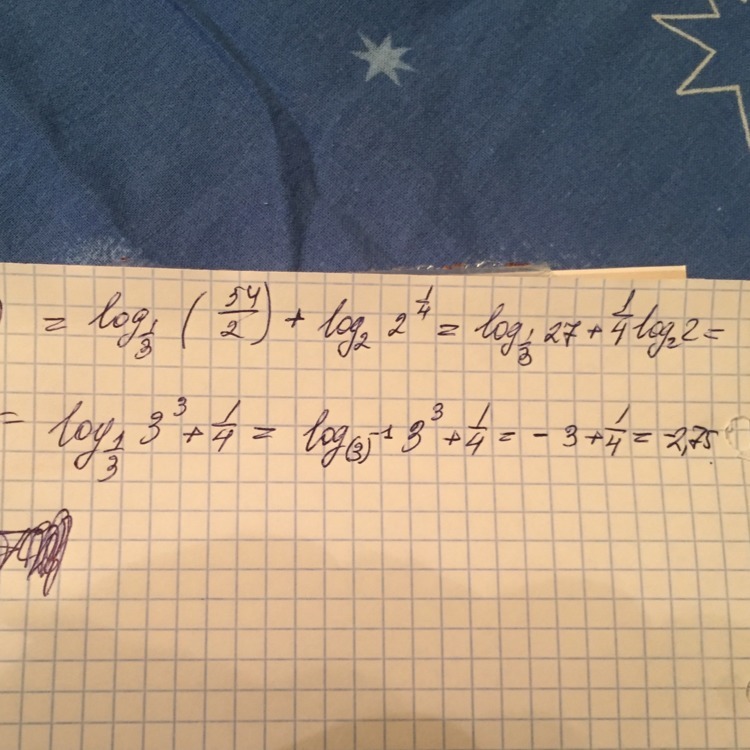 = log_{1/3} (54/2) + log_2 2^{1/4} = log_{1/3} 27 + 1/4 log_2 2 =
= log_{1/3} 3^3 + 1/4 = log_{(3)^{-1}} 3^3 + 1/4 = - 3 + 1/4 = -2,75